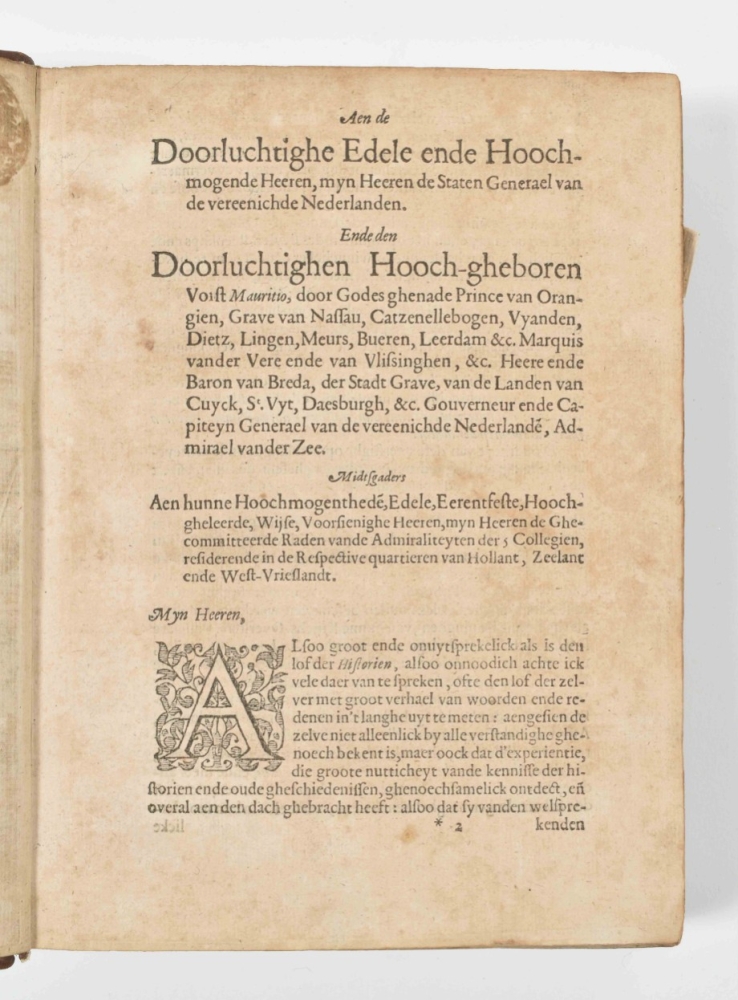 Aen de
Doorluchtighe Edele ende Hooch-
mogende Heeren, myn Heeren de Staten Generael van
de vereenichde Nederlanden.
Ende den
Doorluchtighen Hooch-gheboren
Vorst Mauritio, door Godes ghenade Prince van Oran-
gien, Grave van Naſſau, Catzenellebogen, Vyanden,
Dietz, Lingen, Meurs, Bueren, Leerdam &c. Marquis
vander Vere ende van Vliſsinghen, &c. Heere ende
Baron van Breda, der Stadt Grave, van de Landen van
Cuyck, Sᵗ. Vyt, Daesburgh, &c. Gouverneur ende Ca-
piteyn Generael van de vereenichde Nederlandē, Ad-
mirael vander Zee.
Midtſgaders
Aen hunne Hoochmogenthedē, Edele, Eerentfeſte, Hooch-
gheleerde, Wijſe, Voorſienighe Heeren, myn Heeren de Ghe-
committeerde Raden vande Admiraliteyten der 5 Collegien,
reſiderende in de Reſpective quartieren van Hollant, Zeelant
ende Weſt-Vrieſlandt.
Myn Heeren,
ALſoo groot ende onuytſprekelick als is den
lof der Hiſtorien, alſoo onnoodich achte ick
vele daer van te ſpreken, ofte den lof der zel-
ver met groot verhael van woorden ende re-
denen in't langhe uyt te meten: aengeſien de
zelve niet alleenlick by alle verſtandighe ghe-
noech bekent is, maer oock dat d'experientie,
die groote nutticheyt vande kenniſſe der hi-
ſtorien ende oude gheſchiedeniſſen, ghenoechſamelick ontdect, en̄
overal aen den dach ghebracht heeft: alſoo dat ſy vanden welſpre-
* 2 kenden